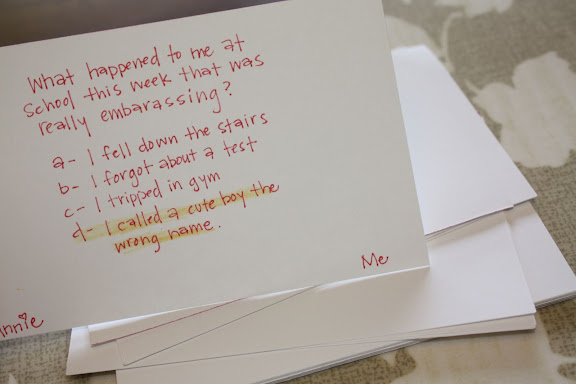 What happened to me at
school this week that was
really embarassing?
a- I fell down the stairs
b- I forgot about a test
c- I tripped in gym
d- I called a cute boy the
wrong name.
Me